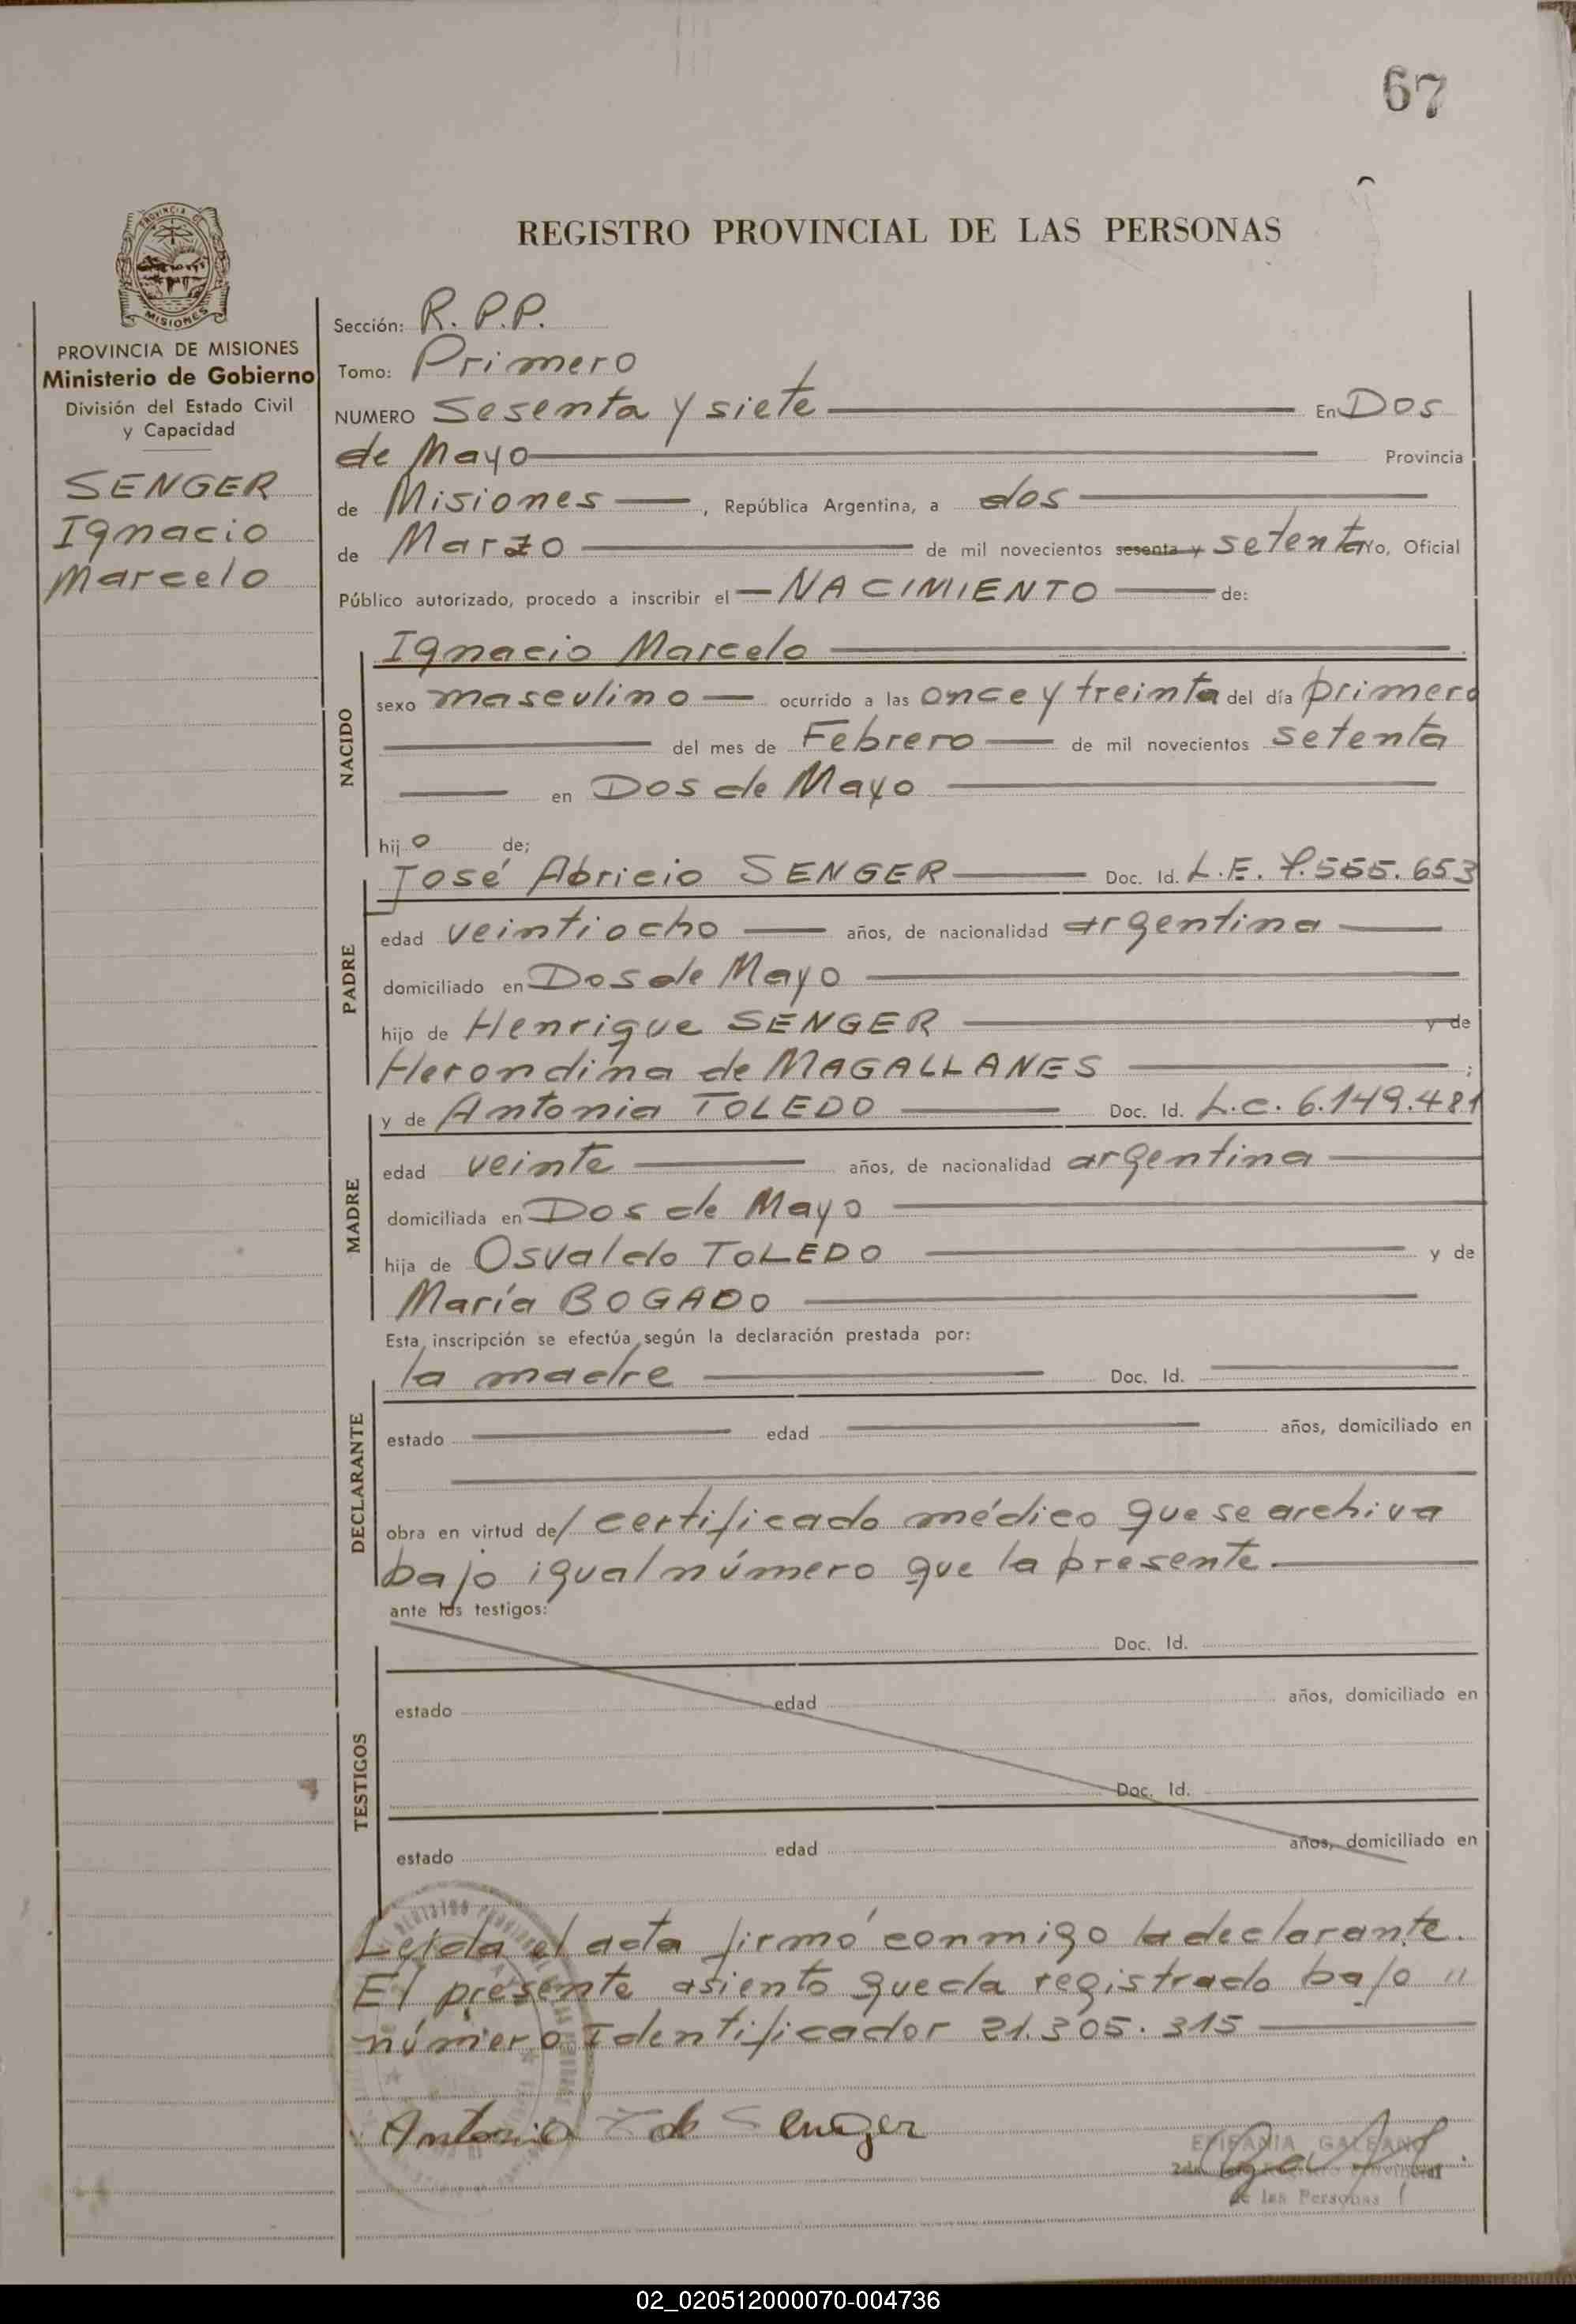 67
REGISTRO PROVINCIAL DE LAS PERSONAS
PROVINCIA DE MISIONES
Ministerio de Gobierno
División del Estado Civil
y Capacidad
SENGER
Ignacio
Marcelo
Sección: R. P.P.
Tomo: Primero
NUMERO Sesenta y siete En Dos
de Mayo Provincia
de Misiones, República Argentina, a dos
de Marzo de mil novecientos sesenta y setenta Yo, Oficial
Público autorizado, procedo a inscribir el NACIMIENTO de:
NACIDO
Ignacio Marcelo
sexo masculino ocurrido a las once y treinta del día primero
del mes de Febrero de mil novecientos setenta
en Dos de Mayo
hijo de;
PADRE
José Abricio SENGER Doc. Id. L.E. 7.555.653
edad veintiocho años, de nacionalidad argentina
domiciliado en Dos de Mayo
hijo de Henrique SENGER y de
Herondina de MAGALLANES ;
MADRE
y de Antonia TOLEDO Doc. Id. L.C. 6.149.481
edad veinte años, de nacionalidad argentina
domiciliada en Dos de Mayo
hija de Osvaldo TOLEDO y de
María BOGADO
Esta inscripción se efectúa según la declaración prestada por:
DECLARANTE
la madre Doc. Id.
estado edad años, domiciliado en
obra en virtud de/ certificado médico que se archiva
bajo igual número que la presente.
ante los testigos:
TESTIGOS
Doc. Id.
estado edad años, domiciliado en
Doc. Id.
estado edad años, domiciliado en
Leída el acta firmó conmigo la declarante.
El presente asiento queda registrado bajo "
número Identificador 21.305.315
Antonia T de Senger
EPIFANIA GALEANO
de las Personas
02_020512000070-004736